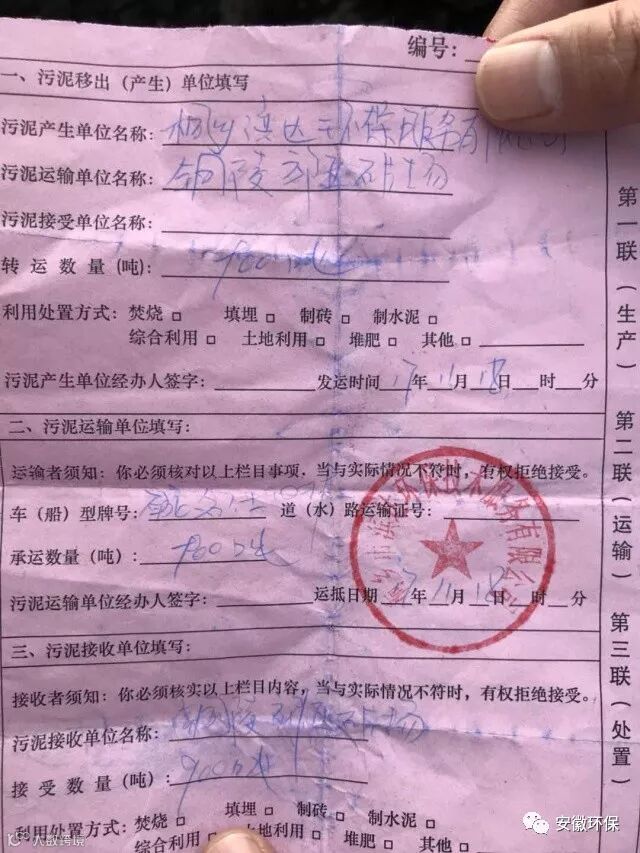 编号：
一、污泥移出（产生）单位填写
污泥产生单位名称：桐乡滨达环保服务有限公司
污泥运输单位名称：铜陵
污泥接受单位名称：
转运数量（吨）：980吨
利用处置方式：焚烧□ 填埋□ 制砖□ 制水泥□
综合利用□ 土地利用□ 堆肥□ 其他□
污泥产生单位经办人签字： 发运时间17年11月18日 时 分
二、污泥运输单位填写：
运输者须知：你必须核对以上栏目事项，当与实际情况不符时，有权拒绝接受。
车（船）型牌号： 道（水）路运输证号：
承运数量（吨）：980吨
污泥运输单位经办人签字： 运抵日期17年11月18日 时 分
环保技术服务有限公司
三、污泥接收单位填写：
接收者须知：你必须核实以上栏目内容，当与实际情况不符时，有权拒绝接受。
污泥接收单位名称：铜陵
接受数量（吨）：900吨
利用处置方式：焚烧□ 填埋□ 制砖□ 制水泥□
综合利用□ 土地利用□ 堆肥□ 其他□
第一联（生产） 第二联（运输） 第三联（处置）
安徽环保
大数跨境